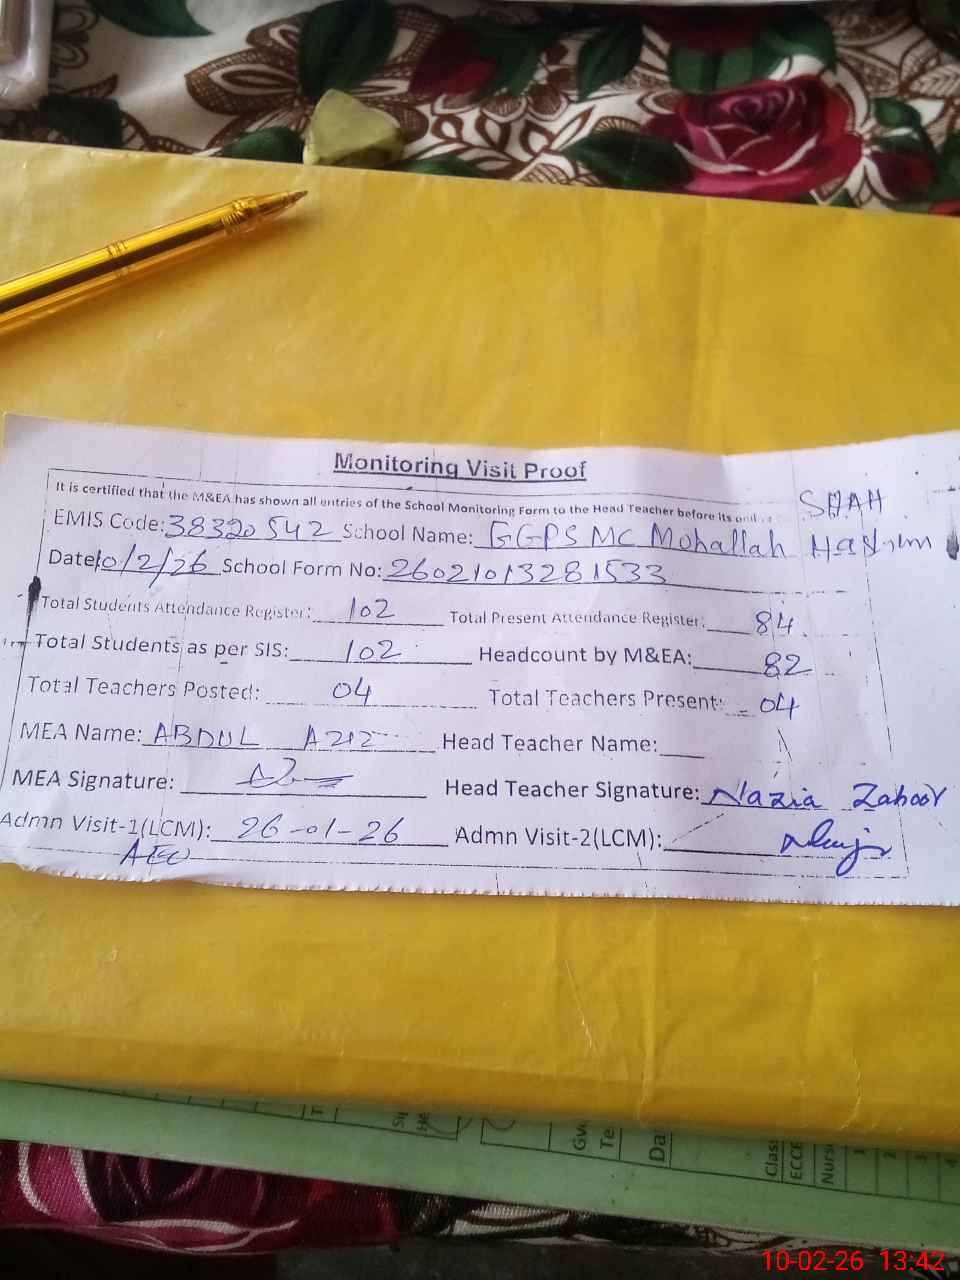 Monitoring Visit Proof
It is certified that the M&EA has shown all entries of the School Monitoring Form to the Head Teacher before its
SHAH
EMIS Code: 38320542 School Name: GGPS MC Mohallah Hashim
Date 10/2/26 School Form No: 26021013281533
Total Students Attendance Register: 102 Total Present Attendance Register: 84
Total Students as per SIS: 102 Headcount by M&EA: 82
Total Teachers Posted: 04 Total Teachers Present: 04
MEA Name: ABDUL AZIZ Head Teacher Name:
MEA Signature: Head Teacher Signature: Nazia Zahoor
Admn Visit-1(LCM): 26-01-26 Admn Visit-2(LCM):
AEO
Gv
Te
Da
Class
ECCE
Nurs
1
2
3
4
10-02-26 13:42